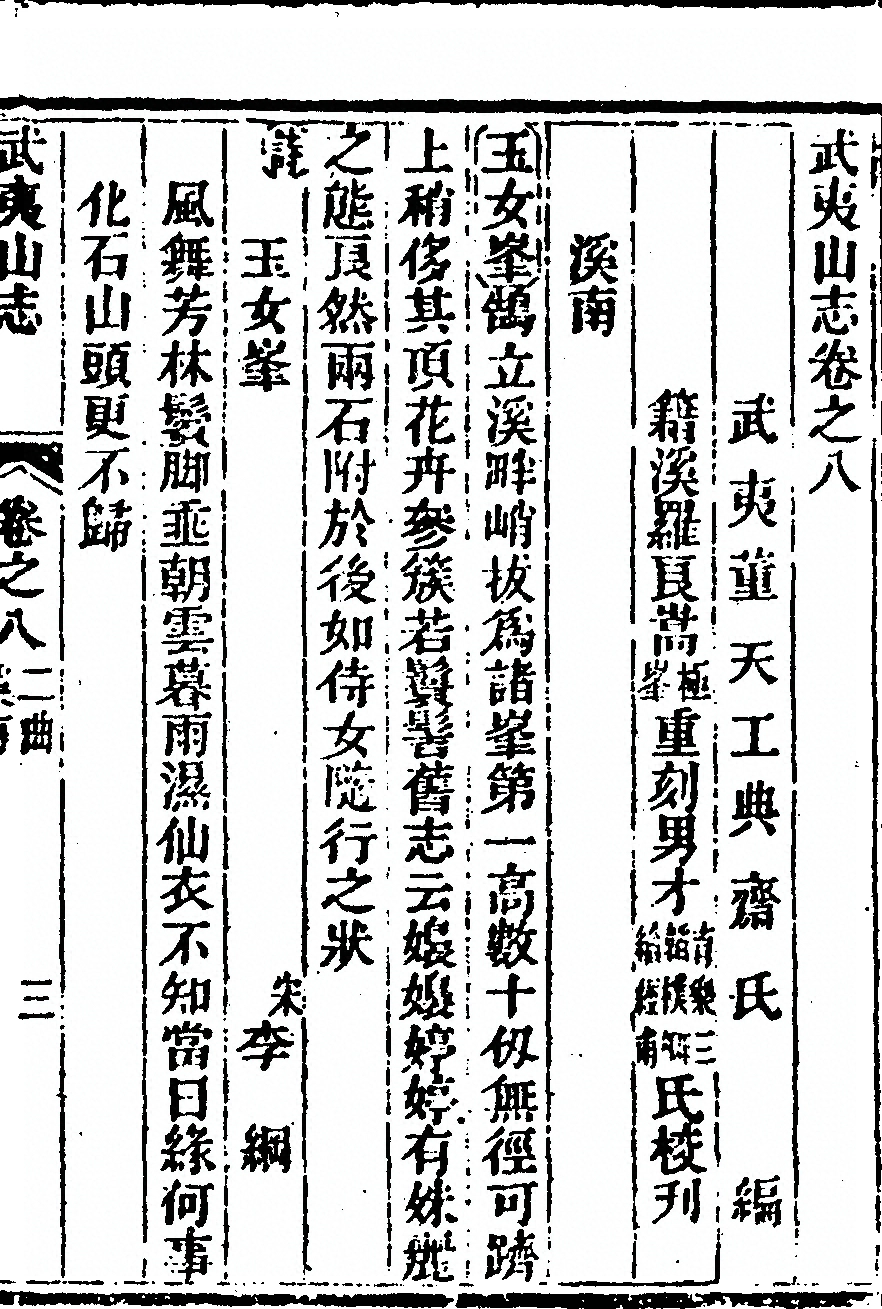 武夷山志卷之八
武夷董天工典齋氏編
籍溪羅良嵩極峯重刻男才三氏校刊
溪南
玉女峯鵠立溪畔峭拔爲諸峯第一高數十仭無徑可躋
上稍侈其頂花卉參簇若鬟髻舊志云嫙嫙婷婷有姝麗
之態良然兩石附於後如侍女隨行之狀
詩
玉女峯宋李綱
風舞芳林鬓脚垂朝雲暮雨濕仙衣不知當日緣何事
化石山頭更不歸
武夷山志
卷之八二曲
三